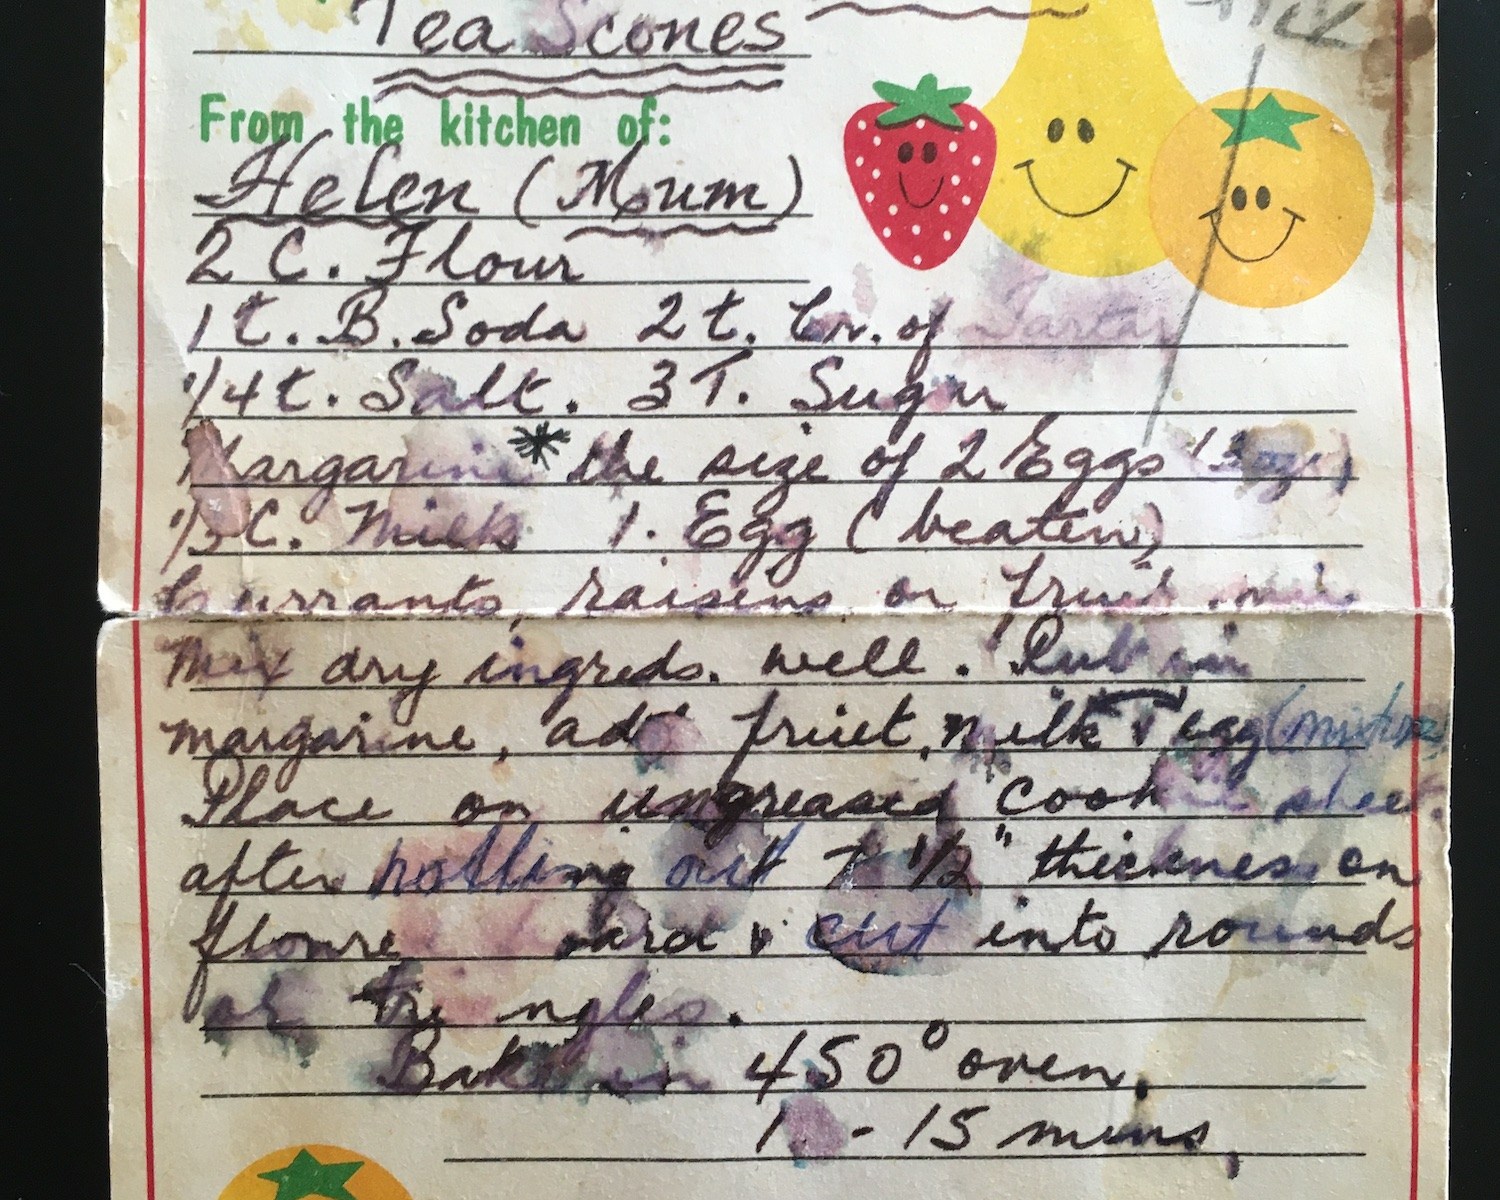 Tea Scones
From the kitchen of:
Helen (Mum)
2 C. Flour
1 t. B. Soda 2 t. Cr. of Tartar
1/4 t. Salt. 3 T. Sugar
Margarine * the size of 2 Eggs (3 ozs.)
1/3 C. Milk 1. Egg (beaten)
Currants, raisins or fruit
Mix dry ingreds. well. Rub in
margarine, add fruit, milk & egg (mixture)
Place on ungreased cookie sheet.
after rolling out to 1/2" thickness on
& cut into rounds
or
Bake in 450° oven.
- 15 mins.